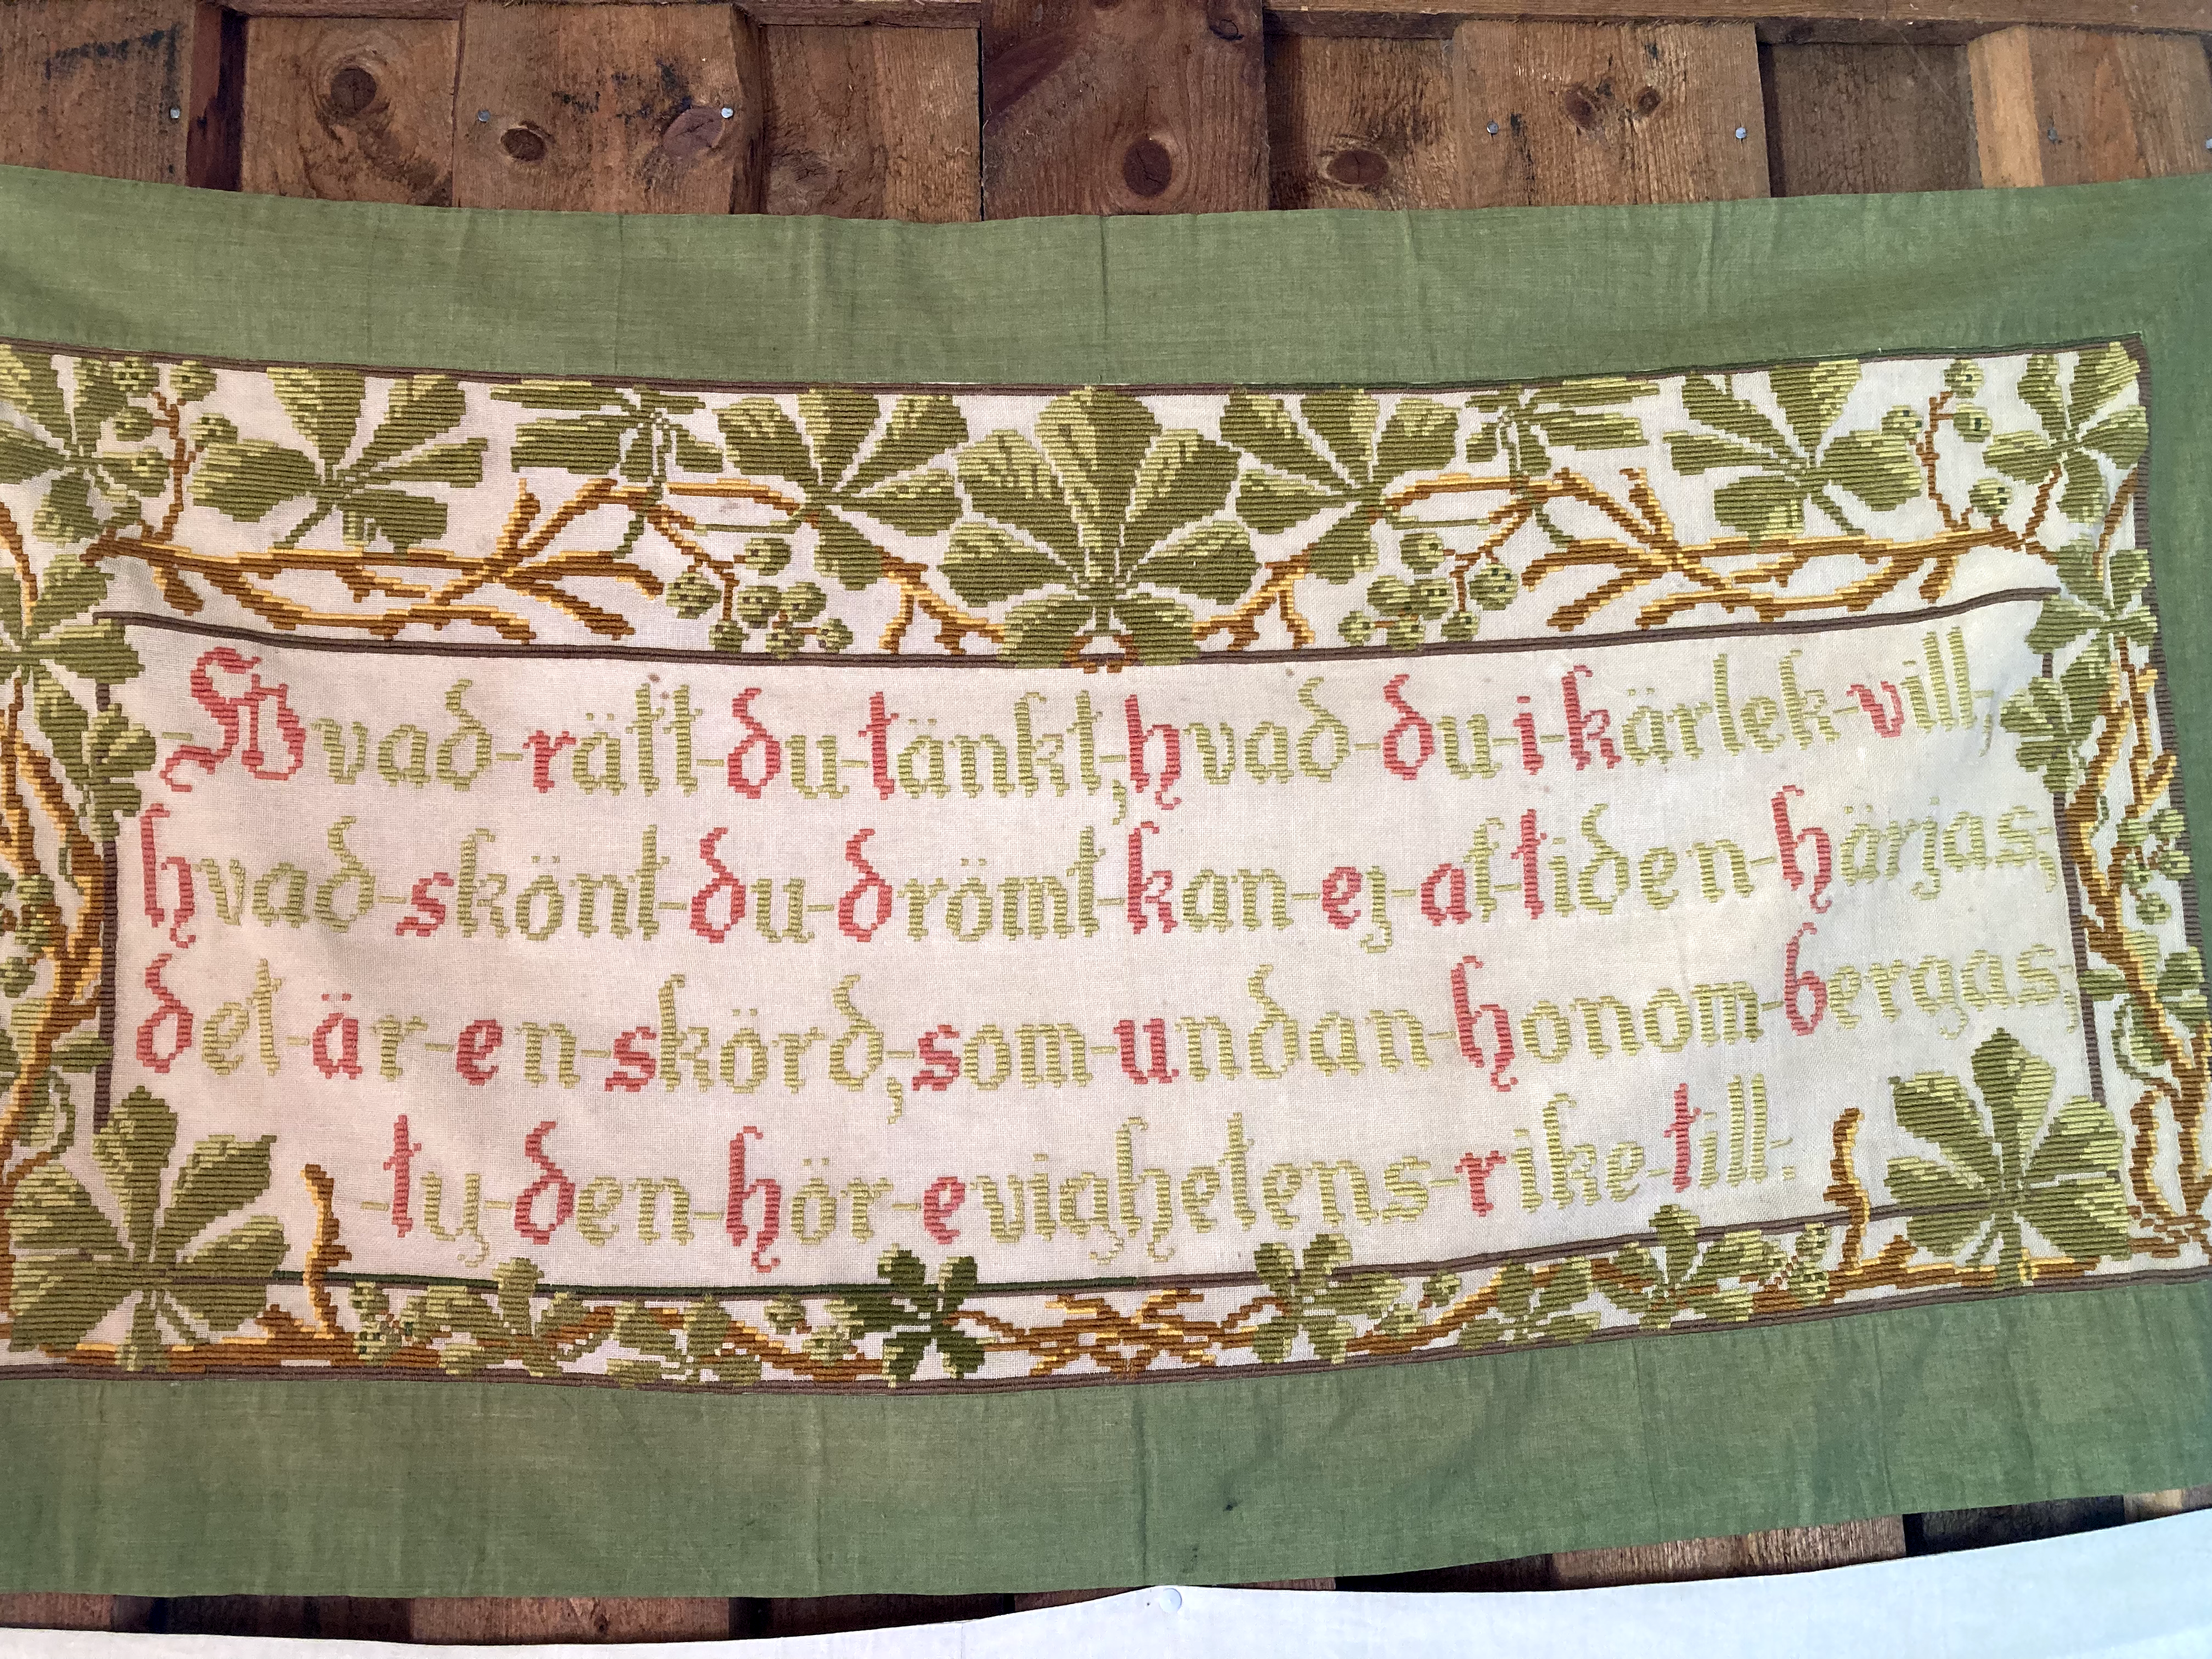 Hvad-rätt-du-tänkt, hvad-du-i-kärlek-vill,
hvad-skönt-du-drömt-kan-ej-af-tiden-härjas;
det-är-en-skörd,-som-undan-honom-bergas,
-ty-den-hör-evighetens-rike-till: